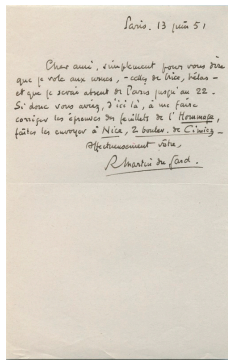 Paris. 13 juin 51
Cher ami, simplement pour vous dire
que je vole aux urnes, - celles de Nice, hélas -
et que je serai absent de Paris jusqu'au 22.
Si donc vous aviez, d'ici là, à me faire
corriger les épreuves des feuillets de l'Hommage,
faites les envoyer à Nice, 2 boulev. de Cimiez
Affectueusement vôtre,
R. Martin du Gard.